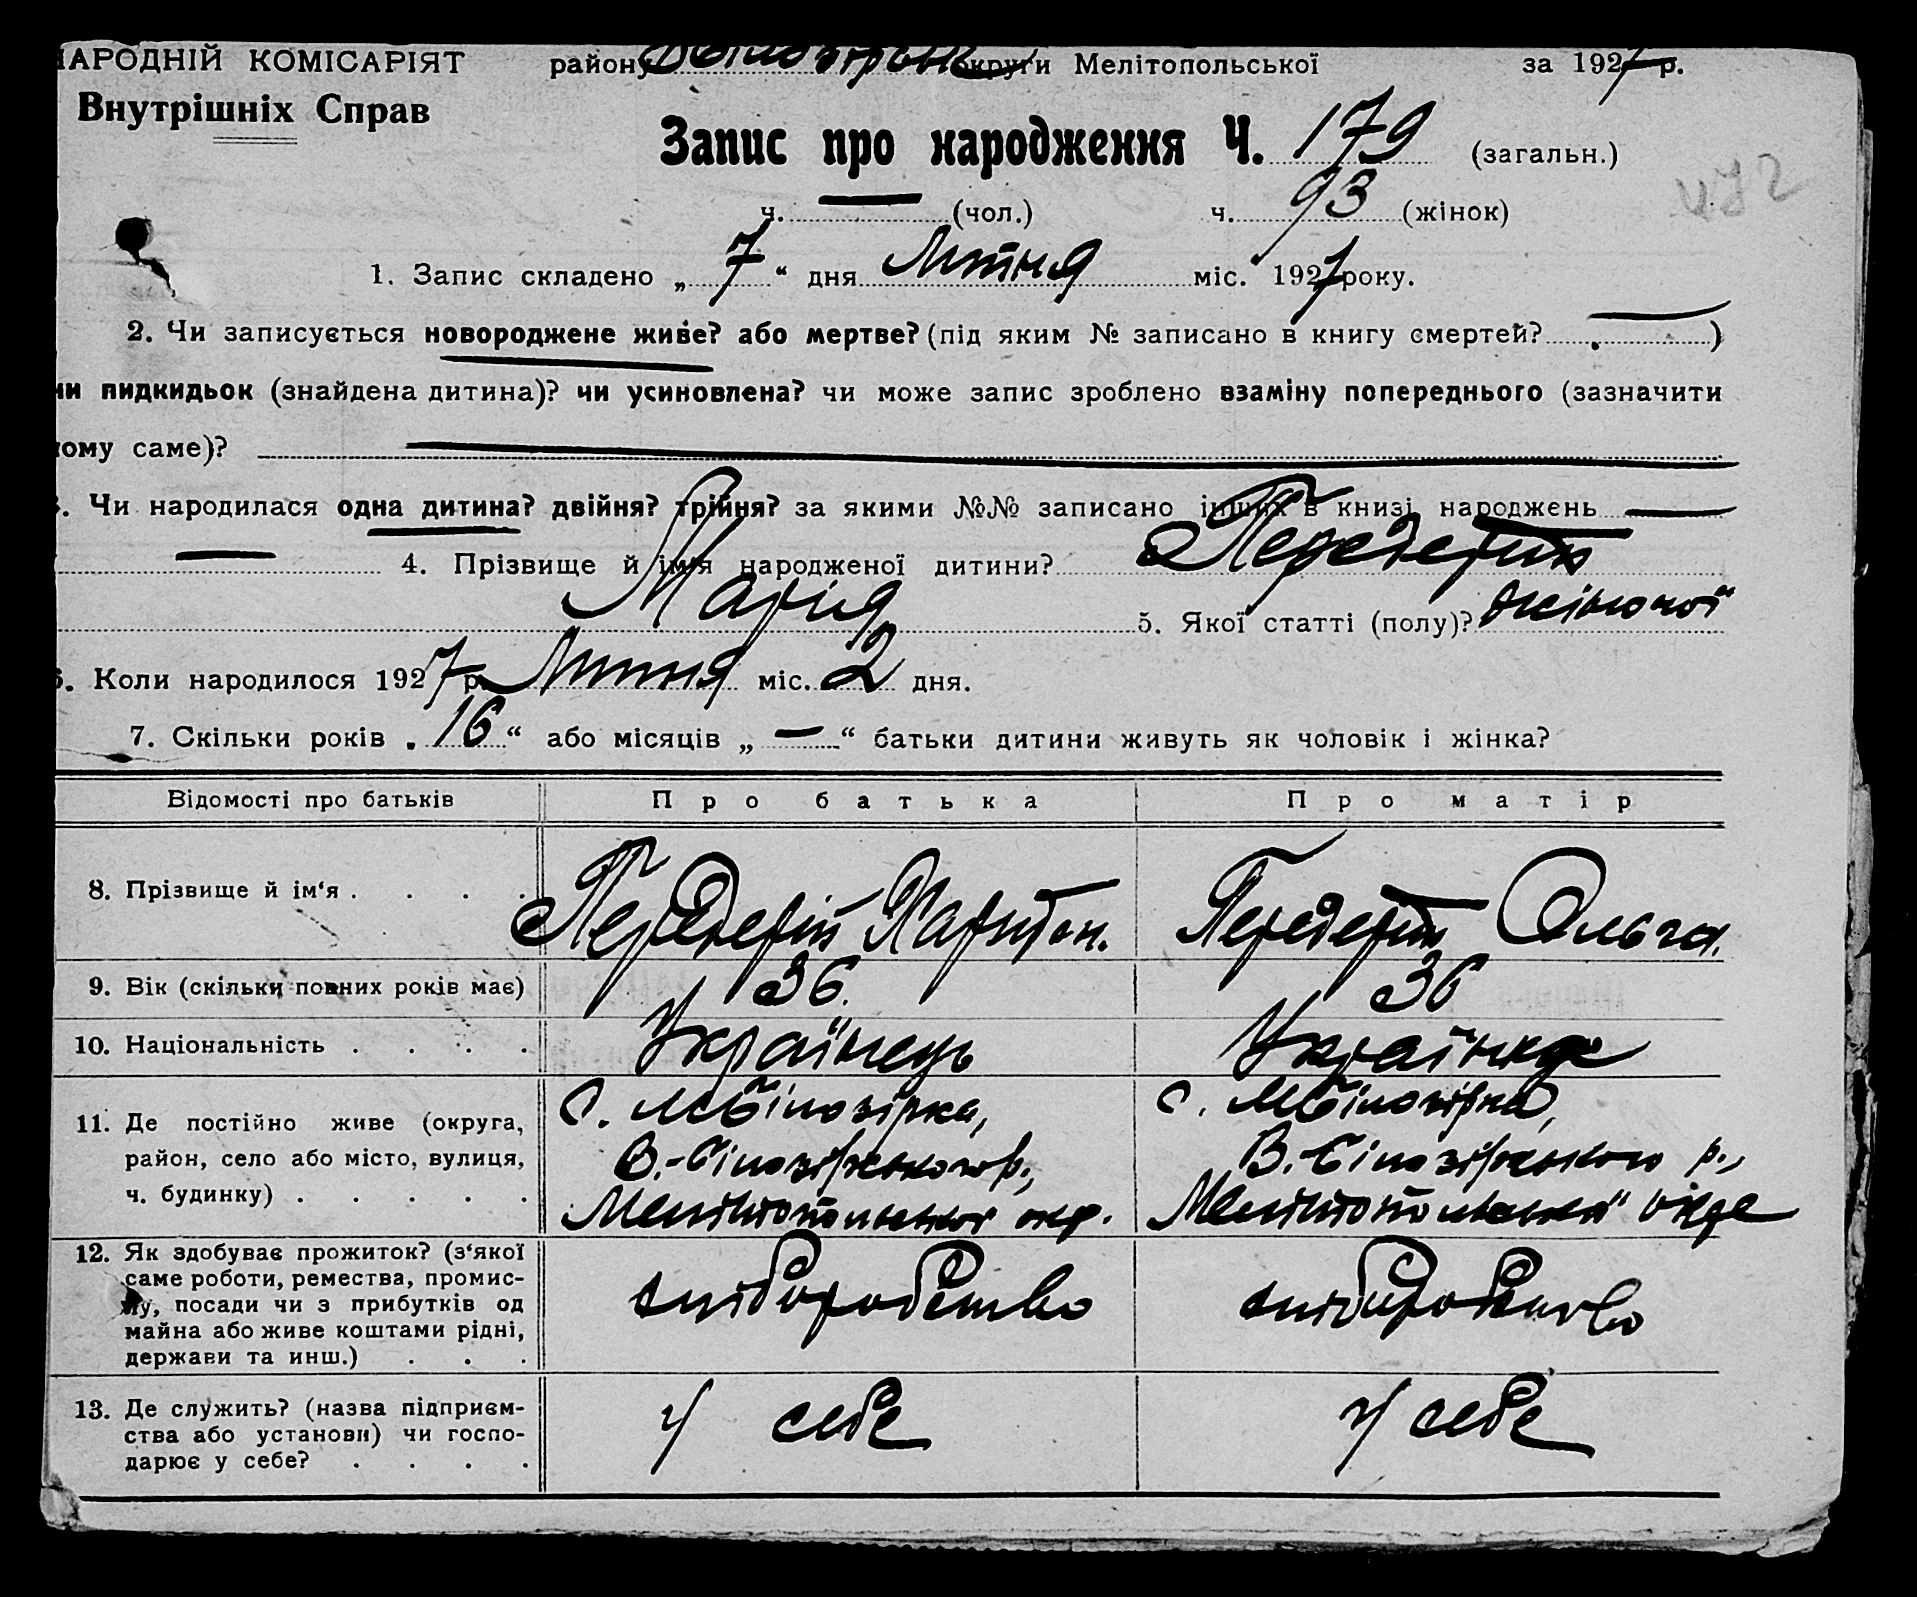 НАРОДНІЙ КОМІСАРІЯТ району округи Мелітопольської за 1927 р.
Внутрішніх Справ
Запис про народження Ч. 179 (загальн.)
ч. — (чол.) ч. 93 (жінок)
1. Запис складено „ 7 “ дня Лютня міс. 1927 року.
2. Чи записується новороджене живе? або мертве? (під яким № записано в книгу смертей? — )
чи пидкидьок (знайдена дитина)? чи усиновлена? чи може запис зроблено взаміну попереднього (зазначити
кому саме)? —
3. Чи народилася одна дитина? двійня? трійня? за якими №№ записано інших в книзі народжень —
— 4. Прізвище й ім'я народженої дитини? Передерій
Марія 5. Якої статті (полу)? жіночої
6. Коли народилося 1927 р. Лютня міс. 2 дня.
7. Скільки років „ 16 “ або місяців „ — “ батьки дитини живуть як чоловік і жінка?
Відомості про батьків Про батька Про матір
8. Прізвище й ім‘я . . . . Передерій Харитон. Передерій Ольга.
9. Вік (скільки повних років має) 36. 36
10. Національність . . . . Українець Українка
11. Де постійно живе (округа, с. М-Білозірка, с. М-Білозірка,
район, село або місто, вулиця, В.-Білозірського р., В.-Білозірського р.,
ч. будинку) . . . . . Мелітопольської окр. Мелітопольської
12. Як здобуває прожиток? (з‘якої
саме роботи, ремества, промис-
лу, посади чи з прибутків од хліборобство хліборобство
майна або живе коштами рідні,
держави та инш.) . . .
13. Де служить? (назва підприєм-
ства або установи) чи госпо- у себе у себе
дарює у себе? . . . .